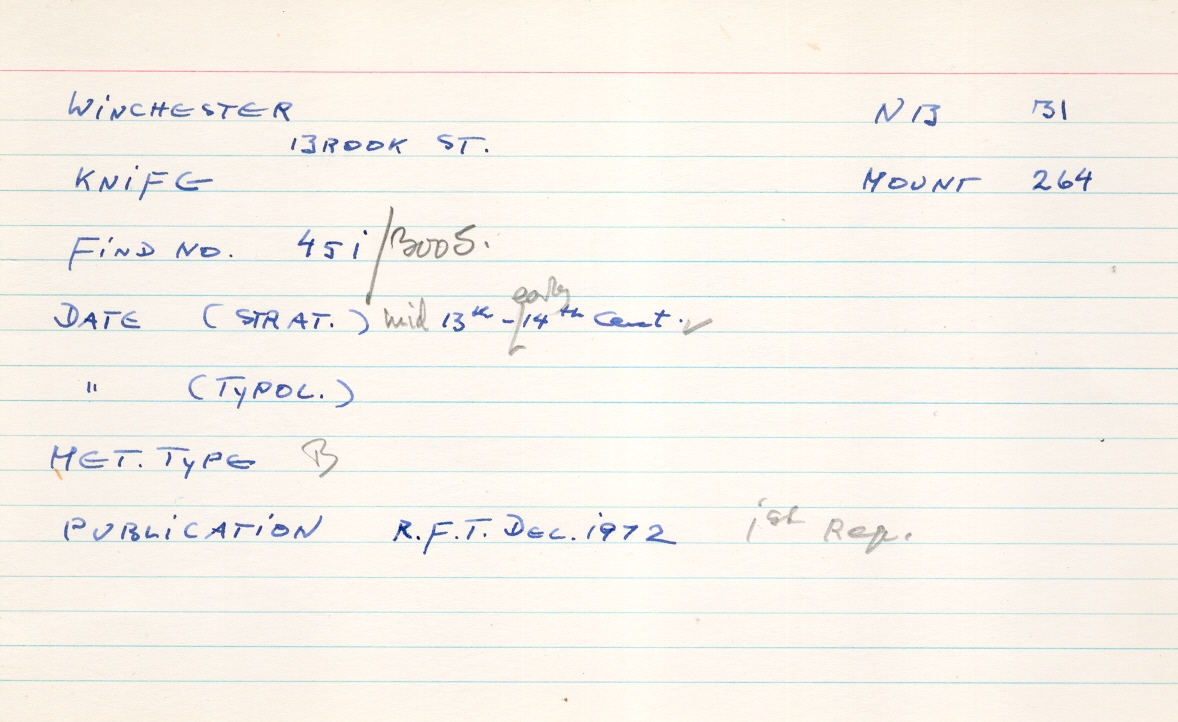 WINCHESTER NB 31
BROOK ST.
KNIFE MOUNT 264
FIND NO. 451/3005.
DATE (STRAT.) mid 13th - early 14th Cent. ✓
" (TYPOL.)
MET. TYPE B
PUBLICATION R.F.T. DEC. 1972 1st Rep.